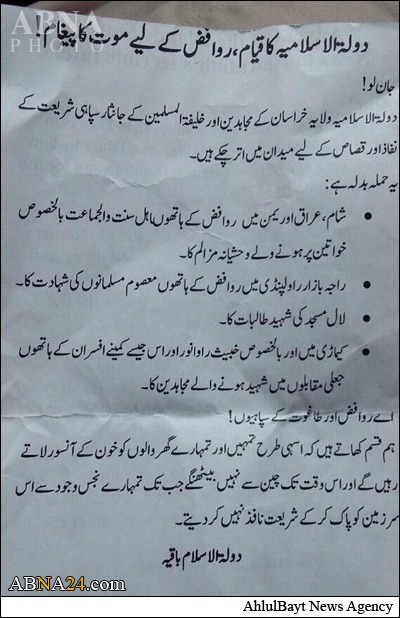 ABNA
PHOTO
دولۃ الاسلامیہ کا قیام، روافض کے لیے موت کا پیغام!
جان لو!
دولۃ الاسلامیہ ولایہ خراسان کے مجاہدین اور خلیفۃ المسلمین کے جانثار سپاہی شریعت کے
نفاذ اور قصاص کے لیے میدان میں اتر چکے ہیں۔
یہ حملہ بدلہ ہے:
• شام، عراق اور یمن میں روافض کے ہاتھوں اہل سنت والجماعت بالخصوص
خواتین پر ہونے والے وحشیانہ مزالم کا۔
• راجہ بازار راولپنڈی میں روافض کے ہاتھوں معصوم مسلمانوں کی شہادت کا۔
• لال مسجد کی شہید طالبات کا۔
• کیماڑی میں اور بالخصوص خبیث راؤ انوار اور اس جیسے کمینے افسران کے ہاتھوں
جعلی مقابلوں میں شہید ہونے والے مجاہدین کا۔
اے روافض اور طاغوت کے سپاہیوں!
ہم قسم کھاتے ہیں کہ اسی طرح تمہیں اور تمہارے گھر والوں کو خون کے آنسو رلاتے
رہیں گے اور اس وقت تک چین سے نہیں بیٹھنگے جب تک تمہارے نجس وجود سے اس
سرزمین کو پاک کر کے شریعت نافذ نہیں کر دیتے۔
دولۃ الاسلام باقیہ
ABNA24.com
AhlulBayt News Agency